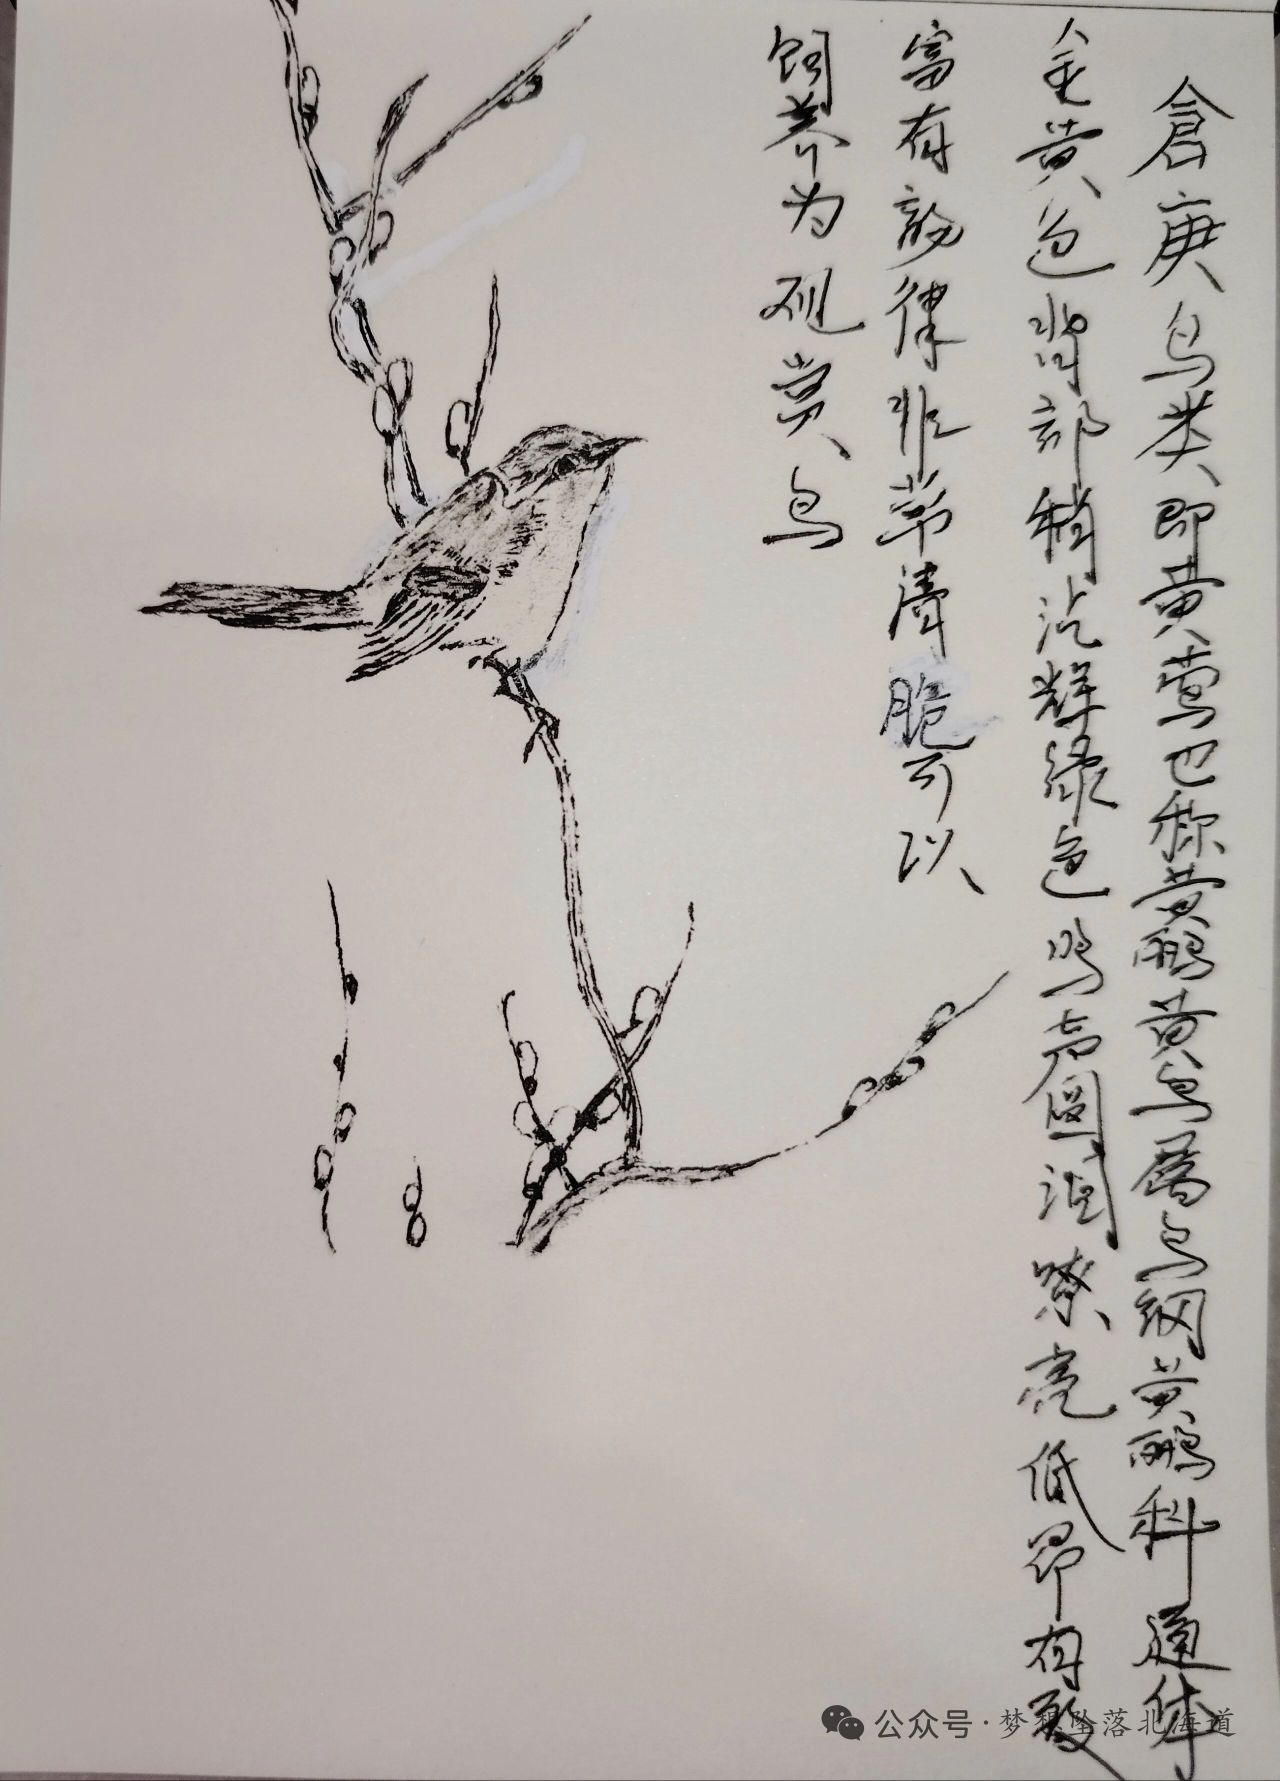 倉庚鸟类即黄莺也称黄鹂黄鸟属鸟纲黄鹂科通体
全黄色背部稍沾辉绿色鸣声圆润嘹亮低昂有致
富有韵律非常清脆可以
饲养为观赏鸟
公众号·梦想坠落北海道